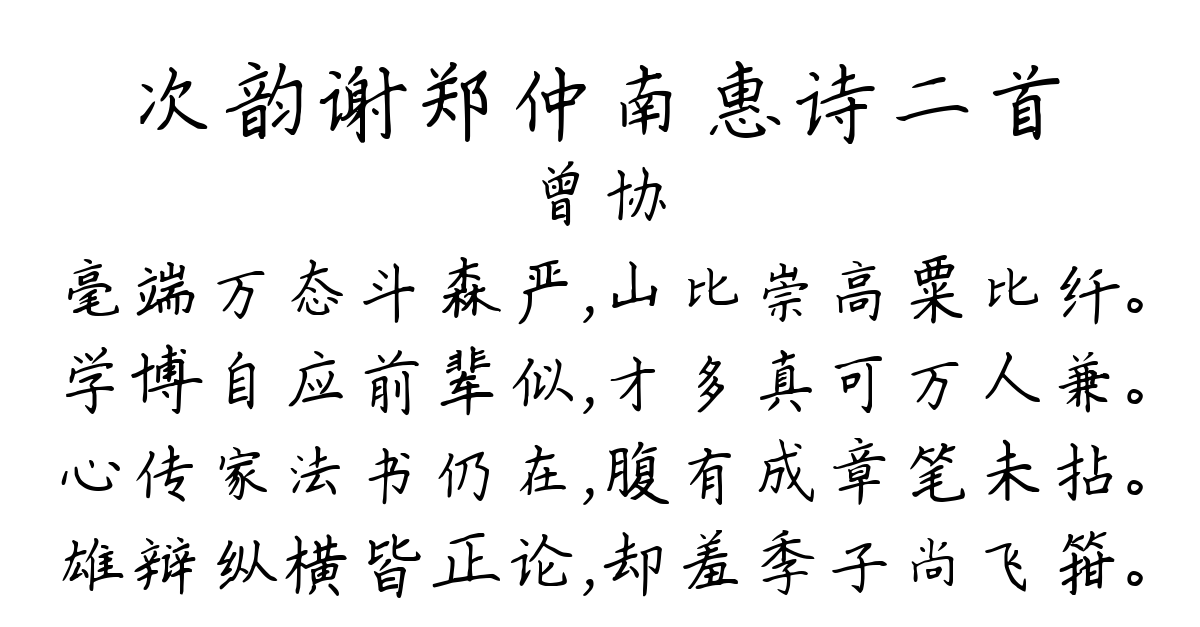 次韵谢郑仲南惠诗二首
曾协
毫端万态斗森严,山比崇高粟比纤。
学博自应前辈似,才多真可万人兼。
心传家法书仍在,腹有成章笔未拈。
雄辩纵横皆正论,却羞季子尚飞箝。